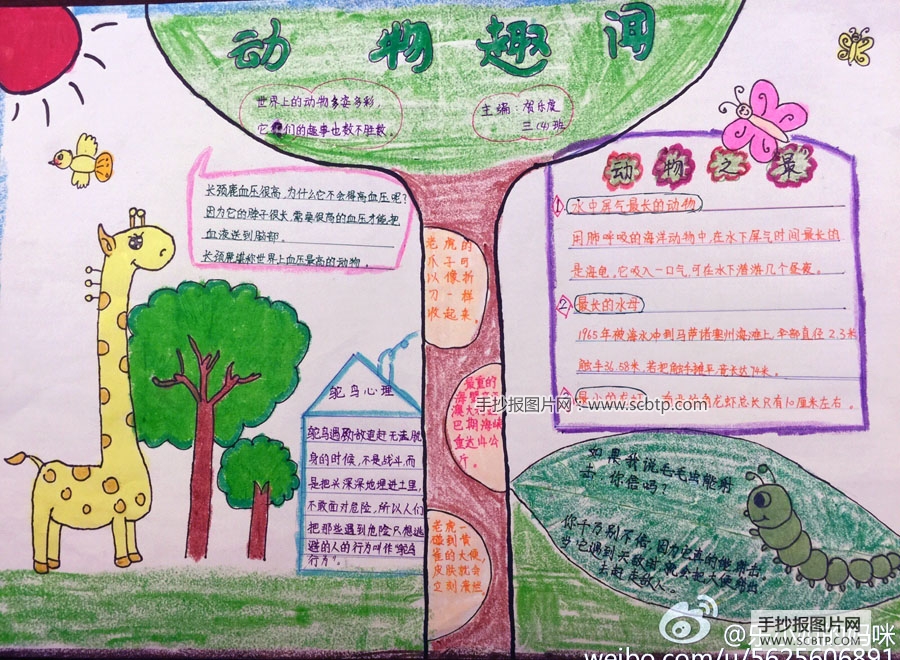 动物趣闻
世界上的动物多姿多彩，
它们的趣事也数不胜数。
主编：贺乐度
三(4)班
长颈鹿血压很高，为什么它不会得高血压呢？
因为它的脖子很长，需要很高的血压才能把
血液送到脑部。
长颈鹿堪称世界上血压最高的动物。
老虎的
爪子可
以像折
刀一样
收起来。
动物之最
①水中屏气最长的动物
用肺呼吸的海洋动物中，在水下屏气时间最长的
是海龟，它吸入一口气，可在水下潜游几个昼夜。
②最长的水母
1965年被海水冲到马萨诸塞州海滩上，伞部直径2.3米
触手36.58米，若把触手摊平，竟长达74米。
最小的龙虾
龙虾总长只有10厘米左右。
手抄报图片网：www.scbtp.com
鸵鸟心理
鸵鸟遇到敌追赶无法脱
身的时候，不是战斗，而
是把头深深地埋进土里，
不敢面对危险，所以人们
把那些遇到危险只想逃
避的人的行为叫作“鸵鸟
行为”。
最重的
海蟹
澳大
巴斯海峡
重达14公
斤。
老虎一
碰到黄
雀的大便，
皮肤就会
立刻溃烂
如果我说毛毛虫能射
去 你信吗？
你千万别不信，因为它真的能射击。
当它遇到天敌时，就会把大便射出
去赶走敌人。
手抄报图片网
WWW.SCBTP.COM
weibo.com/u/5625606891